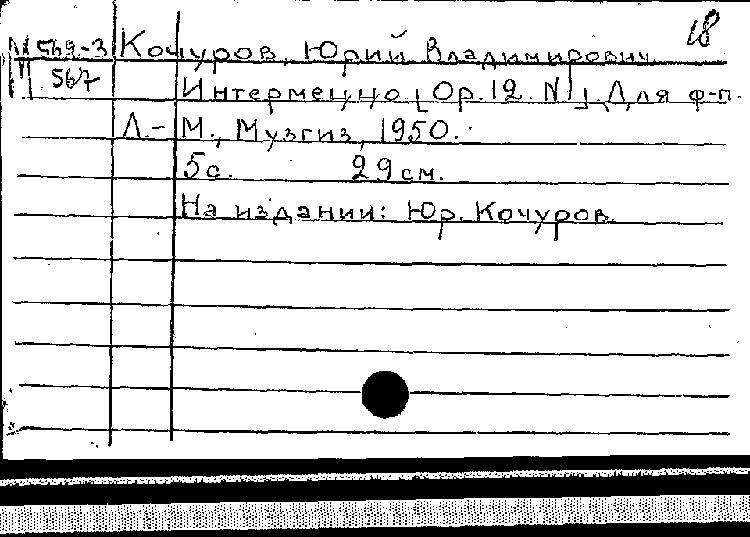 18
М 569-3 Кочуров, Юрий Владимирович
567
Интермеццо [Ор.12. N1]. Для ф-п.
Л.-М., Музгиз, 1950.
5с. 29см.
На издании: Юр. Кочуров.